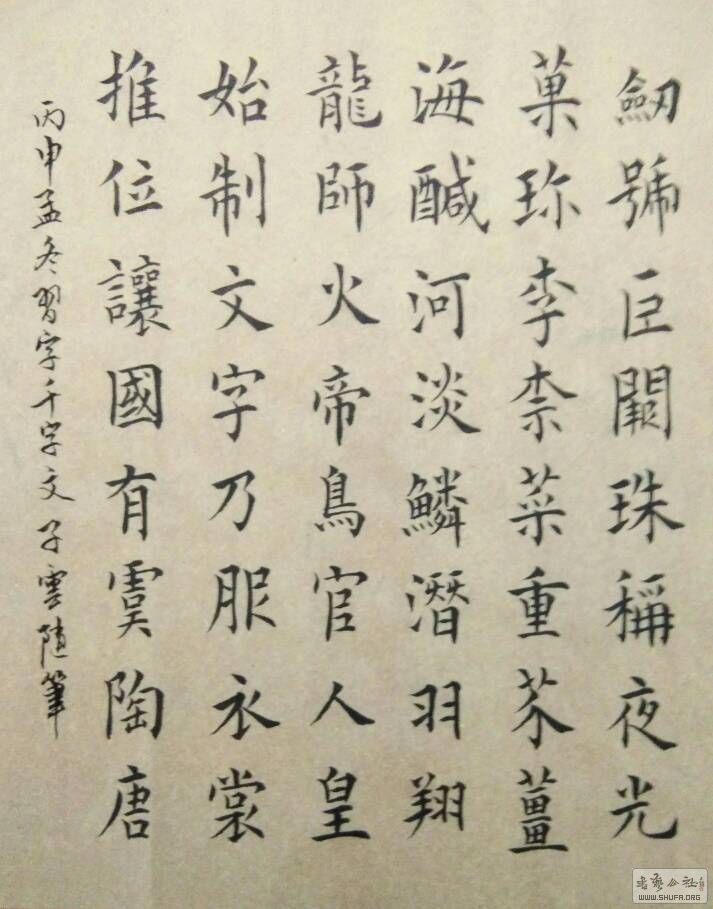 劒號巨闕珠稱夜光
菓珎李柰菜重芥薑
海醎河淡鱗潛羽翔
龍師火帝鳥官人皇
始制文字乃服衣裳
推位讓國有虞陶唐
丙申孟冬習字千字文子雲随筆
書藝公社
WWW.SHUFA.ORG